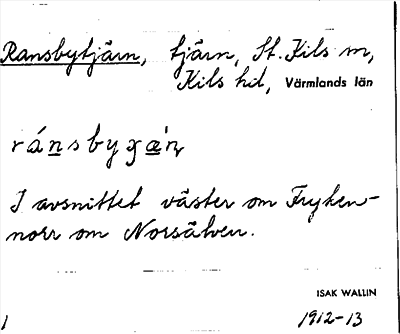 Ransbytjärn, tjärn, St. Kils sn,
Kils hd, Värmlands län
ránsbyɣæ̀n̥
I avsnittet väster om Fryken-
norr om Norsälven.
ISAK WALLIN
1
1912-13